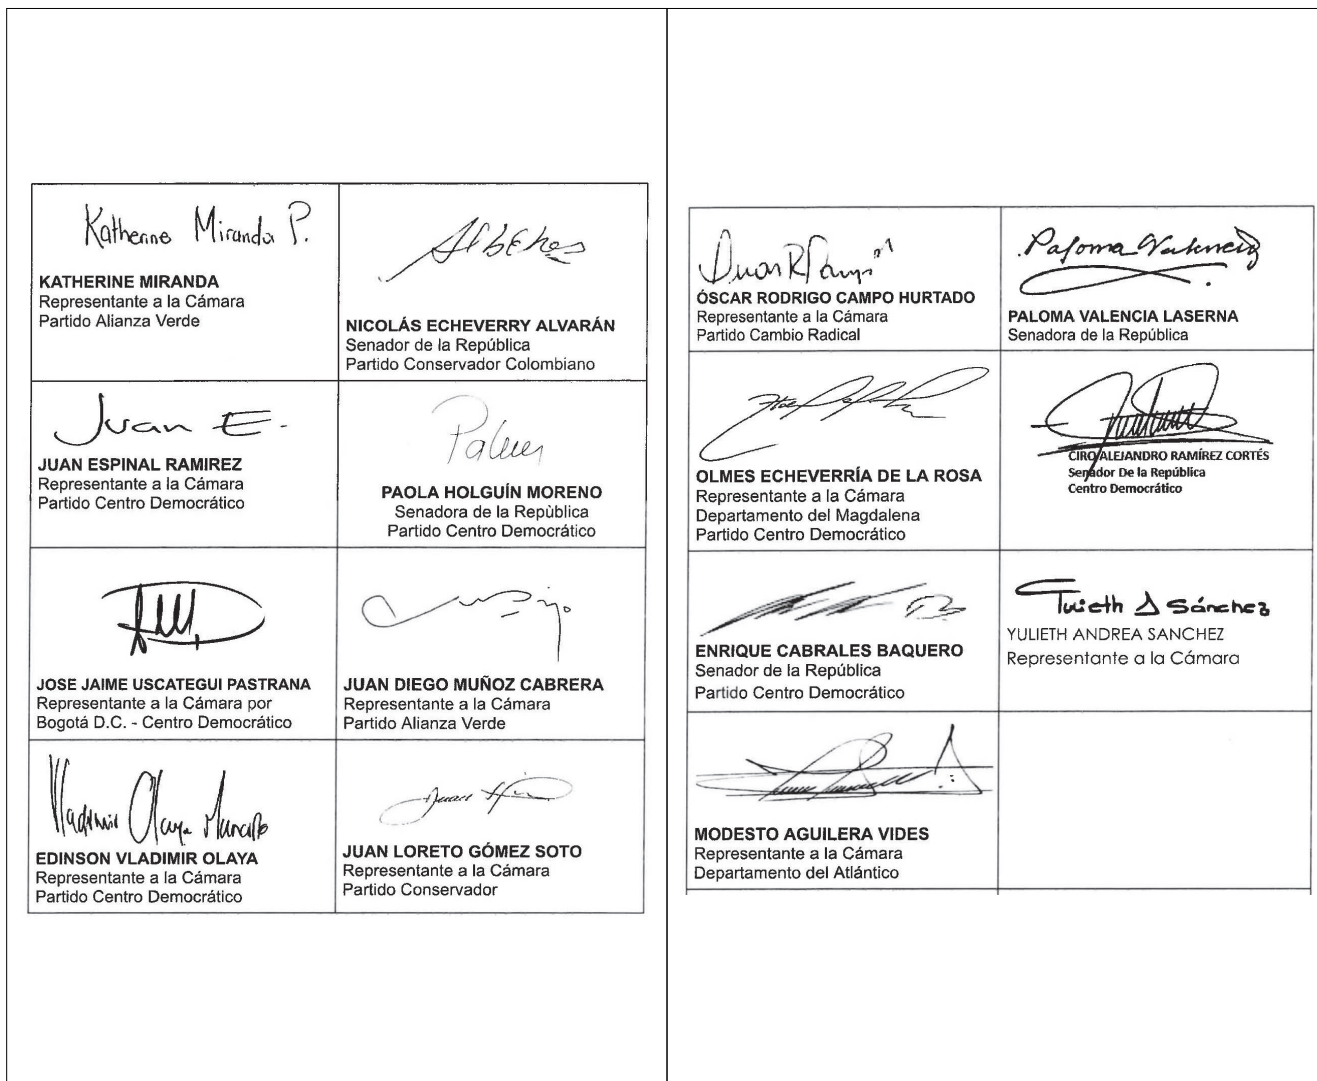 Katherine Miranda P.
KATHERINE MIRANDA
Representante a la Cámara
Partido Alianza Verde
NICOLÁS ECHEVERRY ALVARÁN
Senador de la República
Partido Conservador Colombiano
Juan E.
JUAN ESPINAL RAMIREZ
Representante a la Cámara
Partido Centro Democrático
PAOLA HOLGUÍN MORENO
Senadora de la Repùblica
Partido Centro Democrático
JOSE JAIME USCATEGUI PASTRANA
Representante a la Cámara por
Bogotá D.C. - Centro Democrático
JUAN DIEGO MUÑOZ CABRERA
Representante a la Cámara
Partido Alianza Verde
Vladimir Olaya
EDINSON VLADIMIR OLAYA
Representante a la Cámara
Partido Centro Democrático
JUAN LORETO GÓMEZ SOTO
Representante a la Cámara
Partido Conservador
ÓSCAR RODRIGO CAMPO HURTADO
Representante a la Cámara
Partido Cambio Radical
Paloma Valencia
PALOMA VALENCIA LASERNA
Senadora de la República
OLMES ECHEVERRÍA DE LA ROSA
Representante a la Cámara
Departamento del Magdalena
Partido Centro Democrático
CIRO ALEJANDRO RAMÍREZ CORTÉS
Senador De la República
Centro Democrático
ENRIQUE CABRALES BAQUERO
Senador de la República
Partido Centro Democrático
Yulieth A Sánchez
YULIETH ANDREA SANCHEZ
Representante a la Cámara
MODESTO AGUILERA VIDES
Representante a la Cámara
Departamento del Atlántico